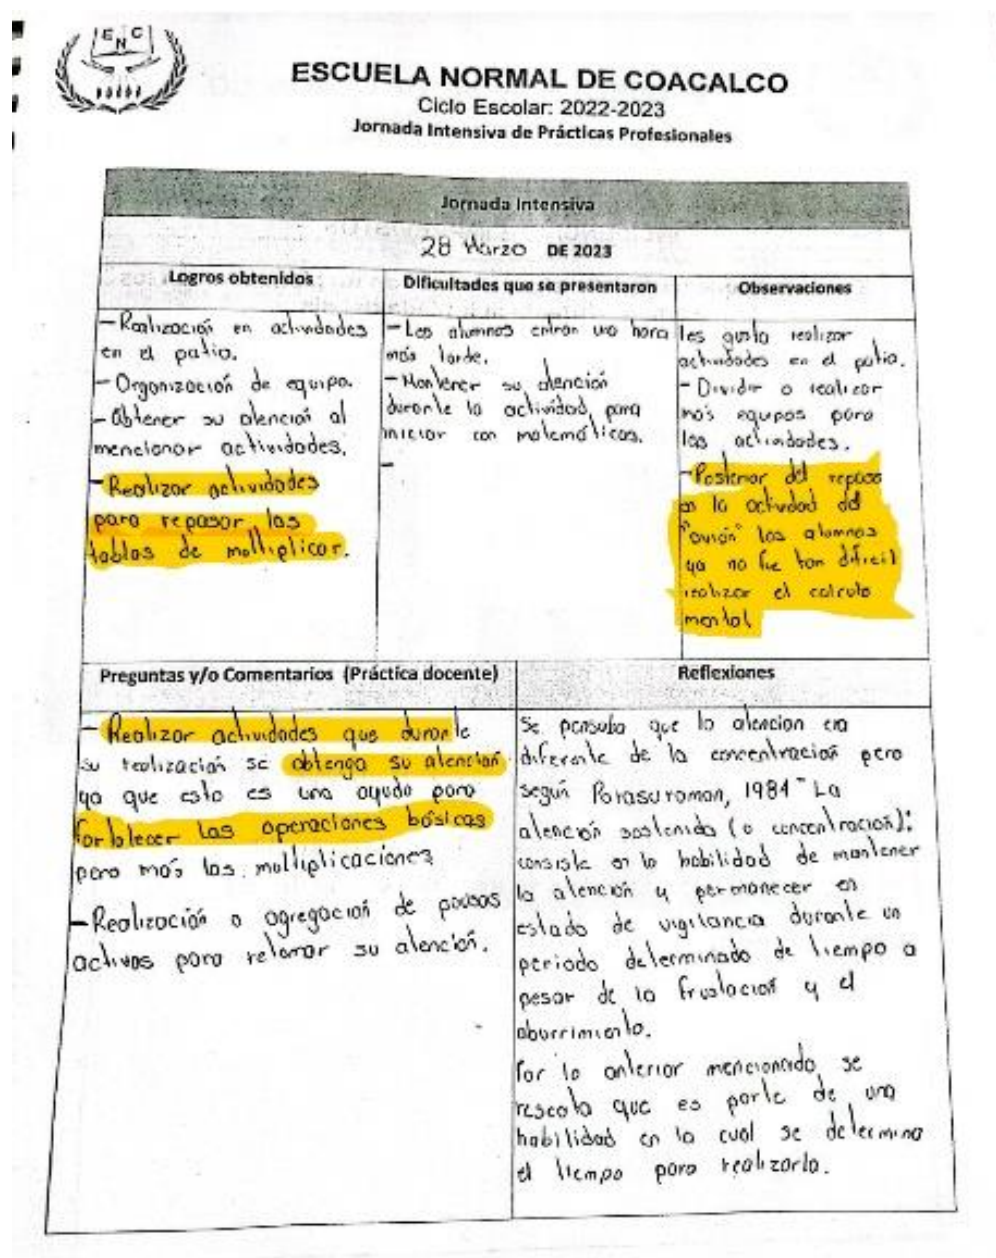 ENC
ESCUELA NORMAL DE COACALCO
Ciclo Escolar: 2022-2023
Jornada Intensiva de Prácticas Profesionales
Jornada Intensiva
28 Marzo DE 2023
Logros obtenidos
- Realización en actividades
en el patio.
- Organización de equipo.
- Obtener su atención al
mencionar actividades.
- Realizar actividades
para repasar las
tablas de multiplicar.
Dificultades que se presentaron
- Los alumnos entran una hora
más tarde.
- Mantener su atención
durante la actividad, para
iniciar con matemáticas.
-
Observaciones
les gusta realizar
actividades en el patio.
- Dividir o realizar
más equipos para
las actividades.
- Posterior del repaso
en la actividad del
"avión" los alumnos
ya no fue tan difícil
realizar el calculo
mental
Preguntas y/o Comentarios (Práctica docente)
- Realizar actividades que durante
su realización se obtenga su atención
ya que esto es una ayuda para
fortalecer las operaciones básicas
pero más las multiplicaciones
- Realización o agregación de pausas
activas para retomar su atención.
Reflexiones
Se pensaba que la atención era
diferente de la concentración pero
según Parasuraman, 1984 "La
atención sostenida (o concentración):
consiste en la habilidad de mantener
la atención y permanecer en
estado de vigilancia durante un
periodo determinado de tiempo a
pesar de la frustación y el
aburrimiento.
Por lo anterior mencionado, se
rescata que es parte de una
habilidad en la cual se determina
el tiempo para realizarla.